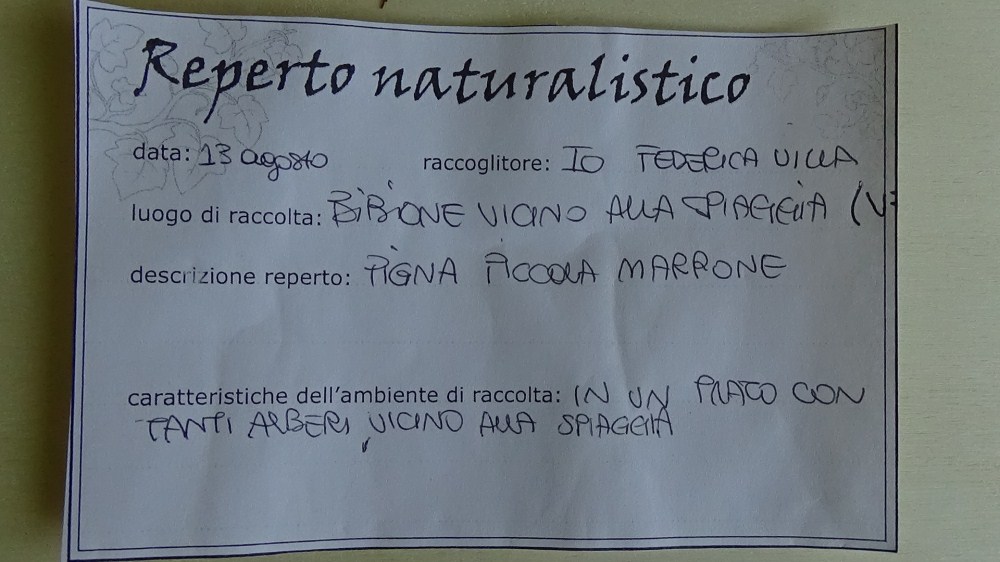 Reperto naturalistico
data: 13 agosto raccoglitore: IO FEDERICA VILLA
luogo di raccolta: BIBIONE VICINO ALLA SPIAGGIA (VE
descrizione reperto: PIGNA PICCOLA MARRONE
caratteristiche dell'ambiente di raccolta: IN UN PRATO CON
TANTI ALBERI, VICINO ALLA SPIAGGIA